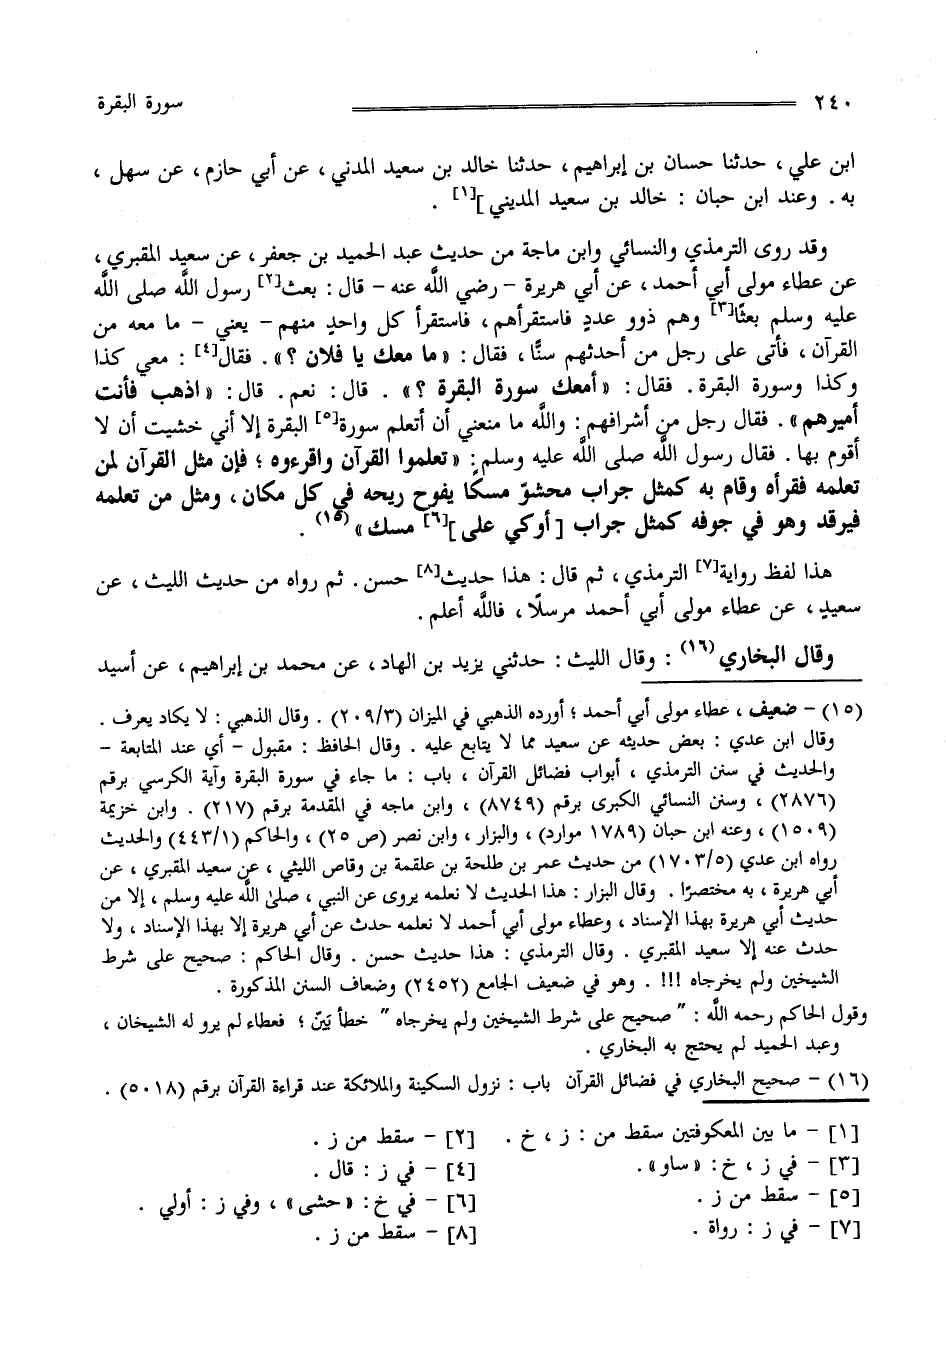 ٢٤٠ سورة البقرة
ابن علي ، حدثنا حسان بن إبراهيم ، حدثنا خالد بن سعيد المدني ، عن أبي حازم ، عن سهل ،
به . وعند ابن حبان : خالد بن سعيد المديني ][١] .
وقد روى الترمذي والنسائي وابن ماجة من حديث عبد الحميد بن جعفر ، عن سعيد المقبري ،
عن عطاء مولى أبي أحمد ، عن أبي هريرة - رضي اللَّه عنه - قال : بعث[٢] رسول اللَّه صلى اللَّه
عليه وسلم بعثًا[٣] وهم ذوو عددٍ فاستقرأهم ، فاستقرأ كل واحدٍ منهم - يعني - ما معه من
القرآن ، فأتى على رجل من أحدثهم سنًّا ، فقال : « ما معك يا فلان ؟ » . فقال[٤] : معي كذا
وكذا وسورة البقرة . فقال : « أمعك سورة البقرة ؟ » . قال : نعم . قال : « اذهب فأنت
أميرهم » . فقال رجل من أشرافهم : واللَّه ما منعني أن أتعلم سورة[٥] البقرة إلا أني خشيت أن لا
أقوم بها . فقال رسول اللَّه صلى اللَّه عليه وسلم : « تعلموا القرآن واقرءوه ؛ فإن مثل القرآن لمن
تعلمه فقرأه وقام به كمثل جراب محشوّ مسكًا يفوح ريحه في كل مكان ، ومثل من تعلمه
فيرقد وهو في جوفه كمثل جراب [ أوكي على ][٦] مسك »(١٥) .
هذا لفظ رواية[٧] الترمذي ، ثم قال : هذا حديث[٨] حسن . ثم رواه من حديث الليث ، عن
سعيدٍ ، عن عطاء مولى أبي أحمد مرسلًا ، فاللَّه أعلم .
وقال البخاري(١٦) : وقال الليث : حدثني يزيد بن الهاد ، عن محمد بن إبراهيم ، عن أسيد
(١٥) - ضعيف ، عطاء مولى أبي أحمد ؛ أورده الذهبي في الميزان (٢٠٩/٣) . وقال الذهبي : لا يكاد يعرف .
وقال ابن عدي : بعض حديثه عن سعيد مما لا يتابع عليه . وقال الحافظ : مقبول - أي عند المتابعة -
والحديث في سنن الترمذي ، أبواب فضائل القرآن ، باب : ما جاء في سورة البقرة وآية الكرسي برقم
(٢٨٧٦) ، وسنن النسائي الكبرى برقم (٨٧٤٩) ، وابن ماجه في المقدمة برقم (٢١٧) . وابن خزيمة
(١٥٠٩) ، وعنه ابن حبان (١٧٨٩ موارد) ، والبزار ، وابن نصر (ص ٢٥) ، والحاكم (٤٤٣/١) والحديث
رواه ابن عدي (١٧٠٣/٥) من حديث عمر بن طلحة بن علقمة بن وقاص الليثي ، عن سعيد المقبري ، عن
أبي هريرة ، به مختصرًا . وقال البزار : هذا الحديث لا نعلمه يروى عن النبي ، صلىٰ اللَّه عليه وسلم ، إلا من
حديث أبي هريرة بهذا الإسناد ، وعطاء مولى أبي أحمد لا نعلمه حدث عن أبي هريرة إلا بهذا الإسناد ، ولا
حدث عنه إلا سعيد المقبري . وقال الترمذي : هذا حديث حسن . وقال الحاكم : صحيح على شرط
الشيخين ولم يخرجاه !!! . وهو في ضعيف الجامع (٢٤٥٢) وضعاف السنن المذكورة .
وقول الحاكم رحمه اللَّه : " صحيح على شرط الشيخين ولم يخرجاه " خطأ بَيّن ؛ فعطاء لم يرو له الشيخان ،
وعبد الحميد لم يحتج به البخاري .
(١٦) - صحيح البخاري في فضائل القرآن باب : نزول السكينة والملائكة عند قراءة القرآن برقم (٥٠١٨) .
[١] - ما بين المعكوفتين سقط من : ز ، خ . [٢] - سقط من ز .
[٣] - في ز ، خ : « ساو» . [٤] - في ز : قال .
[٥] - سقط من ز . [٦] - في خ : « حشى » ، وفي ز : أولي .
[٧] - في ز : رواة . [٨] - سقط من ز .